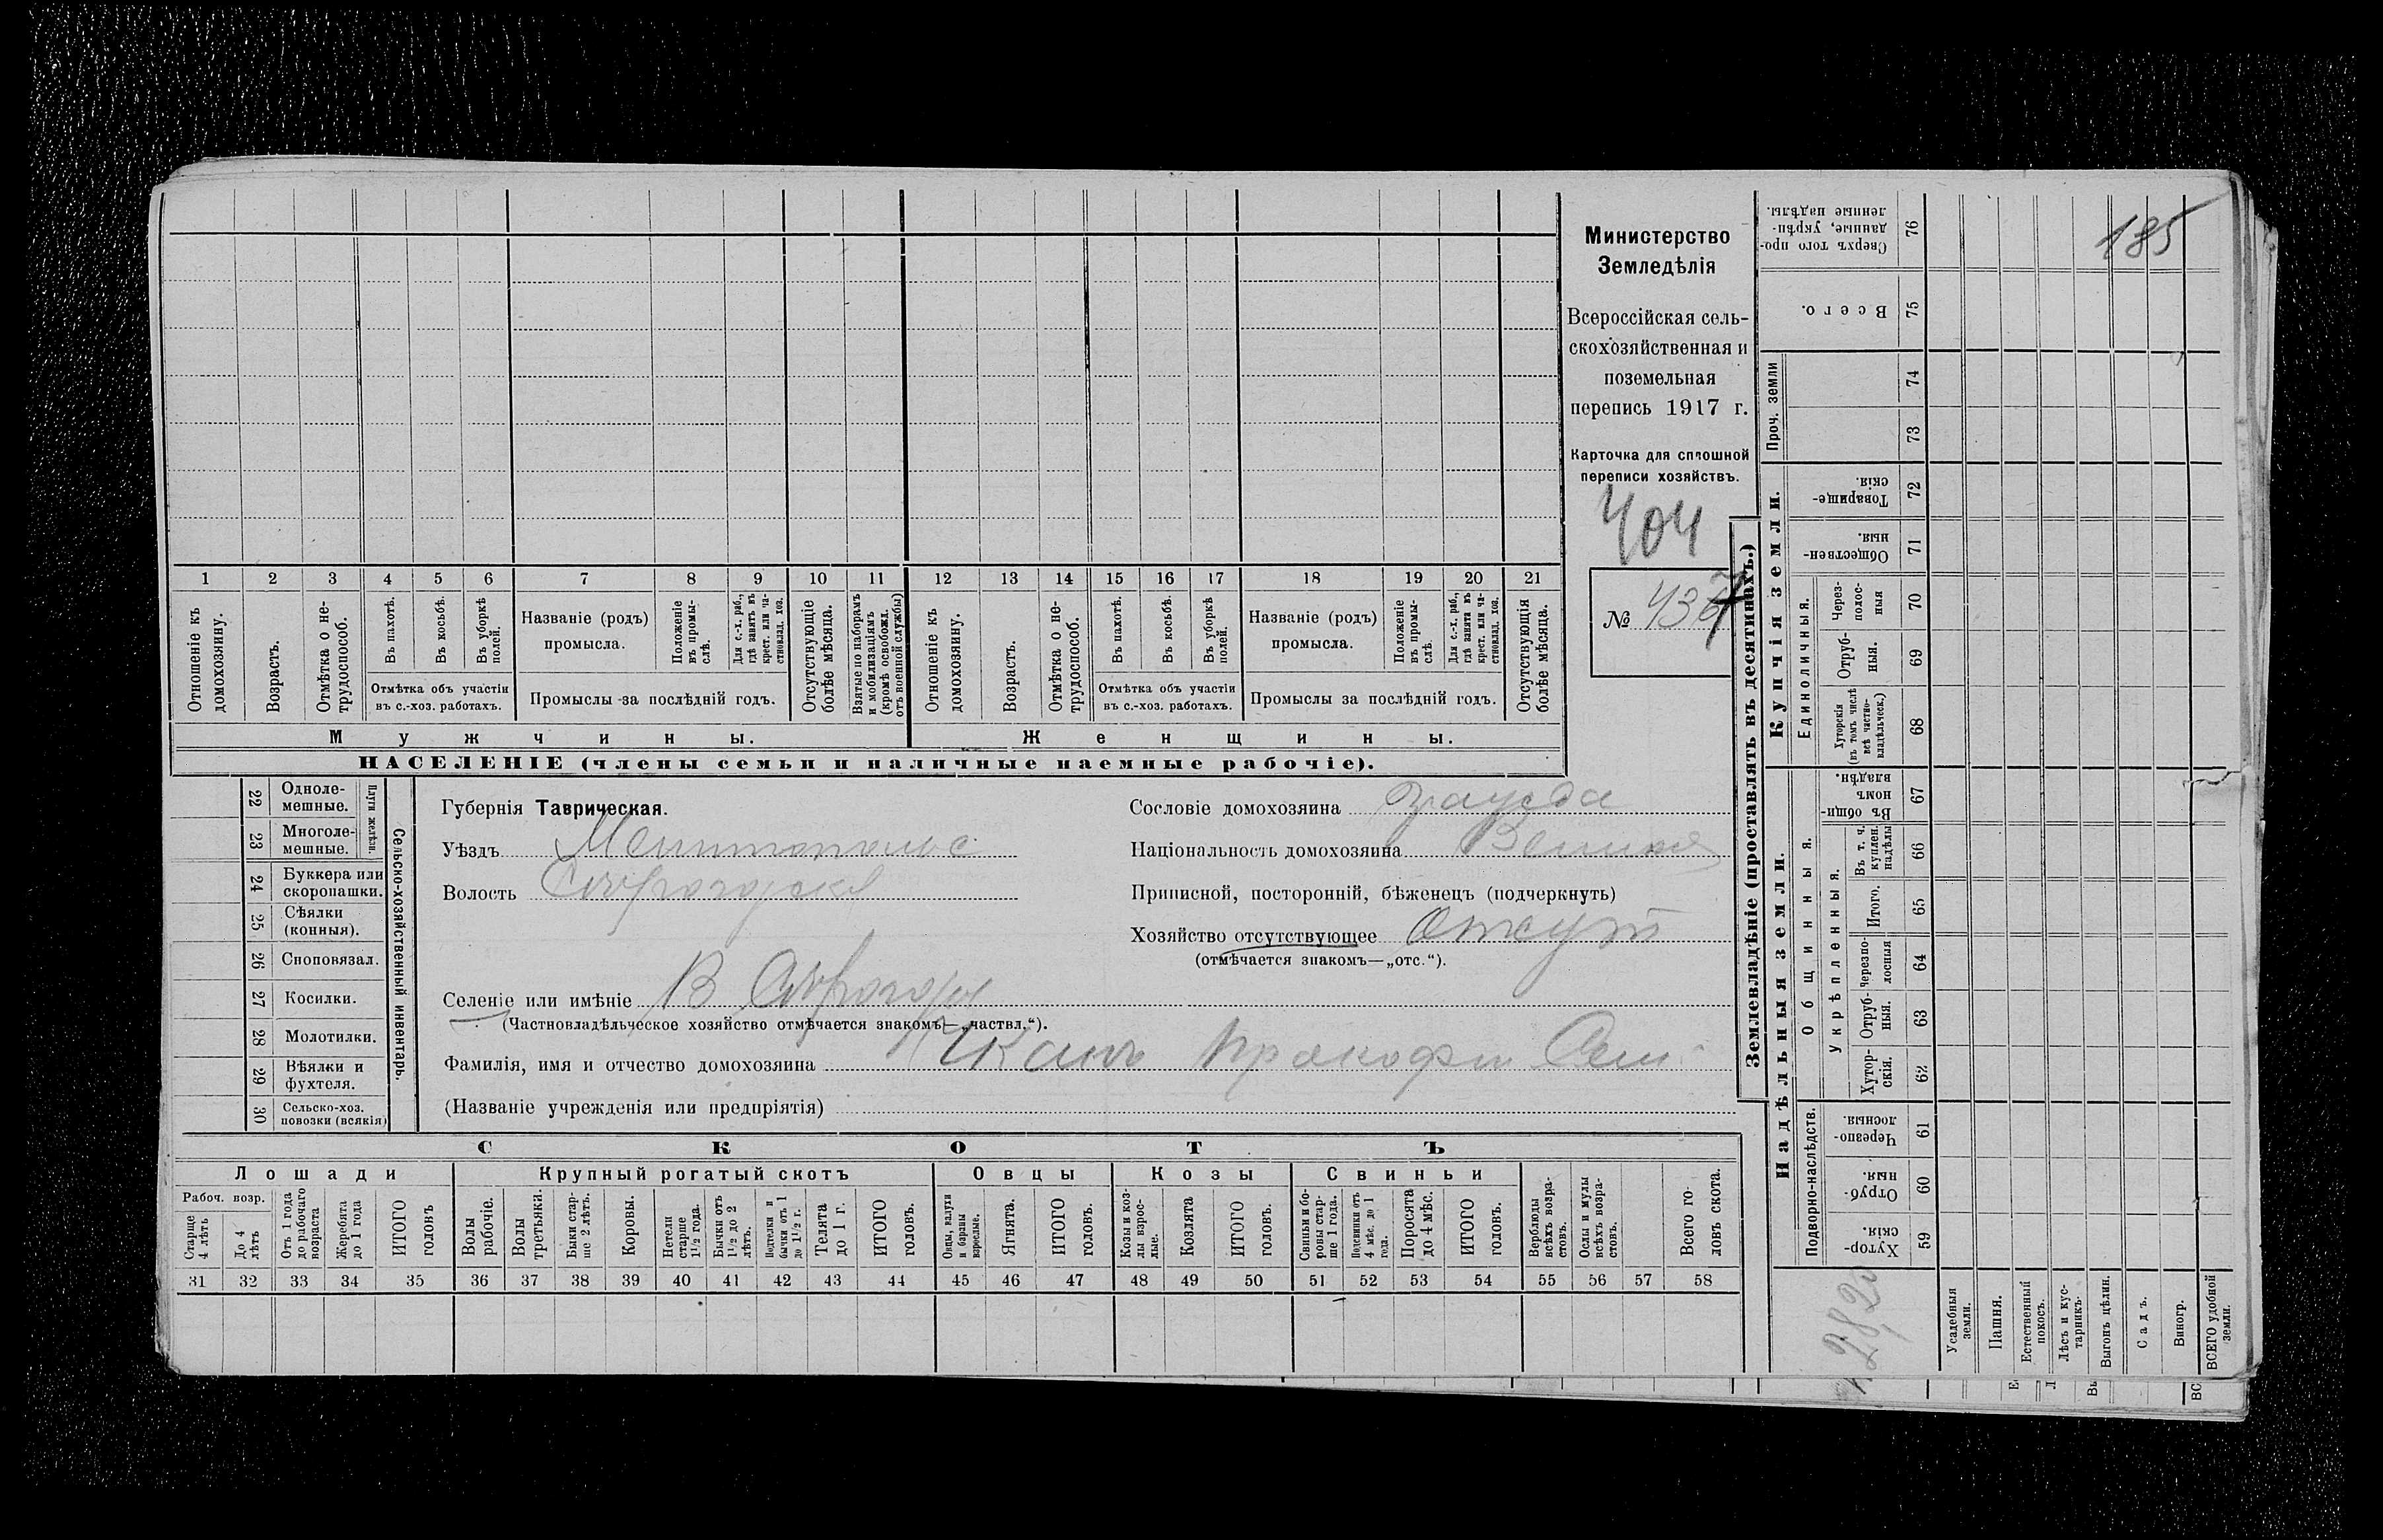 Министерство
Земледѣлія
Всероссійская сель-
скохозяйственная и
поземельная
перепись 1917 г.
Карточка для сплошной
переписи хозяйствъ.
404
№ 437
185
1 2 3 4 5 6 7 8 9 10 11 12 13 14 15 16 17 18 19 20 21
Отношеніе къ домохозяину.
Возрастъ.
Отмѣтка о не-трудоспособ.
Въ пахотѣ.
Въ косьбѣ.
Въ уборкѣ полей.
Отмѣтка объ участіи
въ с.-хоз. работахъ.
Названіе (родъ)
промысла.
Положеніе въ промы-слѣ.
Для с.-х. раб., гдѣ занятъ въ крест. или ча-стновлад. хоз.
Промыслы за послѣдній годъ.
Отсутствующіе болѣе мѣсяца.
Взятые по наборамъ и мобилизаціямъ (кромѣ освобожд. отъ военной службы)
Отношеніе къ домохозяину.
Возрастъ.
Отмѣтка о не-трудоспособ.
Въ пахотѣ.
Въ косьбѣ.
Въ уборкѣ полей.
Отмѣтка объ участіи
въ с.-хоз. работахъ.
Названіе (родъ)
промысла.
Положеніе въ промы-слѣ.
Для с.-х. раб., гдѣ заняти въ крест. или ча-стновлад. хоз.
Промыслы за послѣдній годъ.
Отсутствующія болѣе мѣсяца.
Мужчины.
Женщины.
НАСЕЛЕНІЕ (члены семьи и наличные наемные рабочіе).
22 Одноле-мешные.
23 Многоле-мешные.
Плуги желѣзн.
24 Буккера или скоропашки.
25 Сѣялки (конныя).
26 Сноповязал.
27 Косилки.
28 Молотилки.
29 Вѣялки и фухтеля.
30 Сельско-хоз. повозки (всякія)
Сельско-хозяйственный инвентарь.
Губернія Таврическая.
Уѣздъ Мелитопольс
Волость
Сословіе домохозяина
Національность домохозяина
Приписной, посторонній, бѣженецъ (подчеркнуть)
Хозяйство отсутствующее Отсут
(отмѣчается знакомъ—„отс.“).
Селеніе или имѣніе В
(Частновладѣльческое хозяйство отмѣчается знакомъ—„частвл.“).
Фамилія, имя и отчество домохозяина Прокофи Сем
(Названіе учрежденія или предпріятія)
СКОТЪ
Лошади
Крупный рогатый скотъ
Овцы
Козы
Свиньи
Рабоч. возр.
Старше 4 лѣтъ
До 4 лѣтъ
Отъ 1 года до рабочаго возраста
Жеребята до 1 года
ИТОГО головъ
Волы рабочіе.
Волы третьяки.
Быки стар-ше 2 лѣтъ.
Коровы.
Нетели старше 1 1/2 года.
Бычки отъ 1 1/2 до 2 лѣтъ.
Подтелки и бычки отъ 1 до 1 1/2 г.
Телята до 1 г.
ИТОГО головъ.
Овцы, валухи и бараны взрослые.
Ягнята.
ИТОГО головъ.
Козы и коз-лы взрос-лые.
Козлята
ИТОГО головъ.
Свиньи и бо-ровы стар-ше 1 года.
Подсвинки отъ 4 мѣс. до 1 года.
Поросята до 4 мѣс.
ИТОГО головъ.
Верблюды всѣхъ возра-стовъ.
Ослы и мулы всѣхъ возра-стовъ.
Всего го-ловъ скота.
31 32 33 34 35 36 37 38 39 40 41 42 43 44 45 46 47 48 49 50 51 52 53 54 55 56 57 58
Землевладѣніе (проставлять въ десятинахъ.)
Купчія земли.
Сверхъ того про-данные, укрѣп-ленные надѣлы. 76
Всего. 75
Проч. земли
74
73
Товарище-скія. 72
Обществен-ныя. 71
Единоличныя.
Через-полос-ныя 70
Отруб-ныя. 69
Хуторскія (въ томъ числѣ всѣ частно-владѣльческ.) 68
Надѣльныя земли.
Общинныя.
Въ общи-номъ владѣн. 67
Укрѣпленныя.
Въ т. ч. куплен. надѣлы 66
Итого. 65
Черезпо-лосныя 64
Отруб-ныя. 63
Хутор-скія. 62
Подворно-наслѣдств.
Черезпо-лосныя. 61
Отруб-ныя. 60
Хутор-скія. 59
Усадебныя земли.
Пашня.
Естественный покосъ.
Лѣсъ и кус-тарникъ.
Выгонъ цѣлин.
Садъ.
Виногр.
ВСЕГО удобной земли.